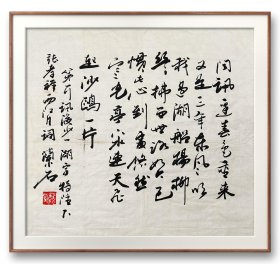 问訊边春色重来
又是三年东风吹
我过湖船杨柳
丝丝拂面世路如今已
惯此心到处悠然
寒光亭下水连天飞
起沙鸥一片
第一行訊
少一湖字
张孝祥西江月词 兰石